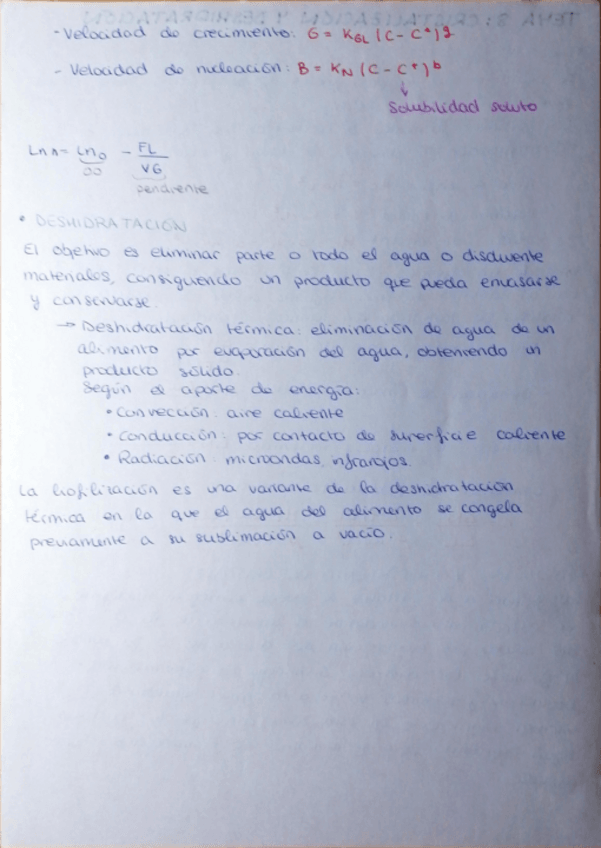 - Velocidad de crecimiento: G = K_GL (C - C*)^g
- Velocidad de nucleación: B = K_N (C - C*)^b
↓
Solubilidad soluto
Ln n = Ln_0 - FL/VG
pendiente
• DESHIDRATACIÓN
El objetivo es eliminar parte o todo el agua o disolvente
materiales, consiguiendo un producto que pueda envasarse
y conservarse.
→ Deshidratación térmica: eliminación de agua de un
alimento por evaporación del agua, obteniendo un
producto sólido.
Según el aporte de energía:
• Convección: aire caliente
• Conducción: por contacto de superficie caliente
• Radiación: microondas, infrarojos.
La liofilización es una variante de la deshidratación
térmica en la que el agua del alimento se congela
previamente a su sublimación a vacío.